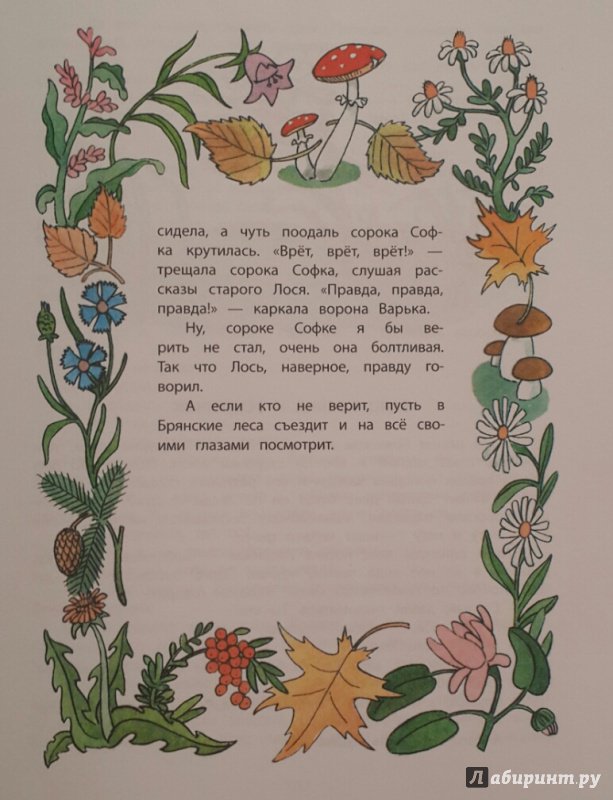 сидела, а чуть поодаль сорока Соф-
ка крутилась. «Врёт, врёт, врёт!» —
трещала сорока Софка, слушая рас-
сказы старого Лося. «Правда, правда,
правда!» — каркала ворона Варька.
Ну, сороке Софке я бы ве-
рить не стал, очень она болтливая.
Так что Лось, наверное, правду го-
ворил.
А если кто не верит, пусть в
Брянские леса съездит и на всё сво-
ими глазами посмотрит.
Лабиринт.ру